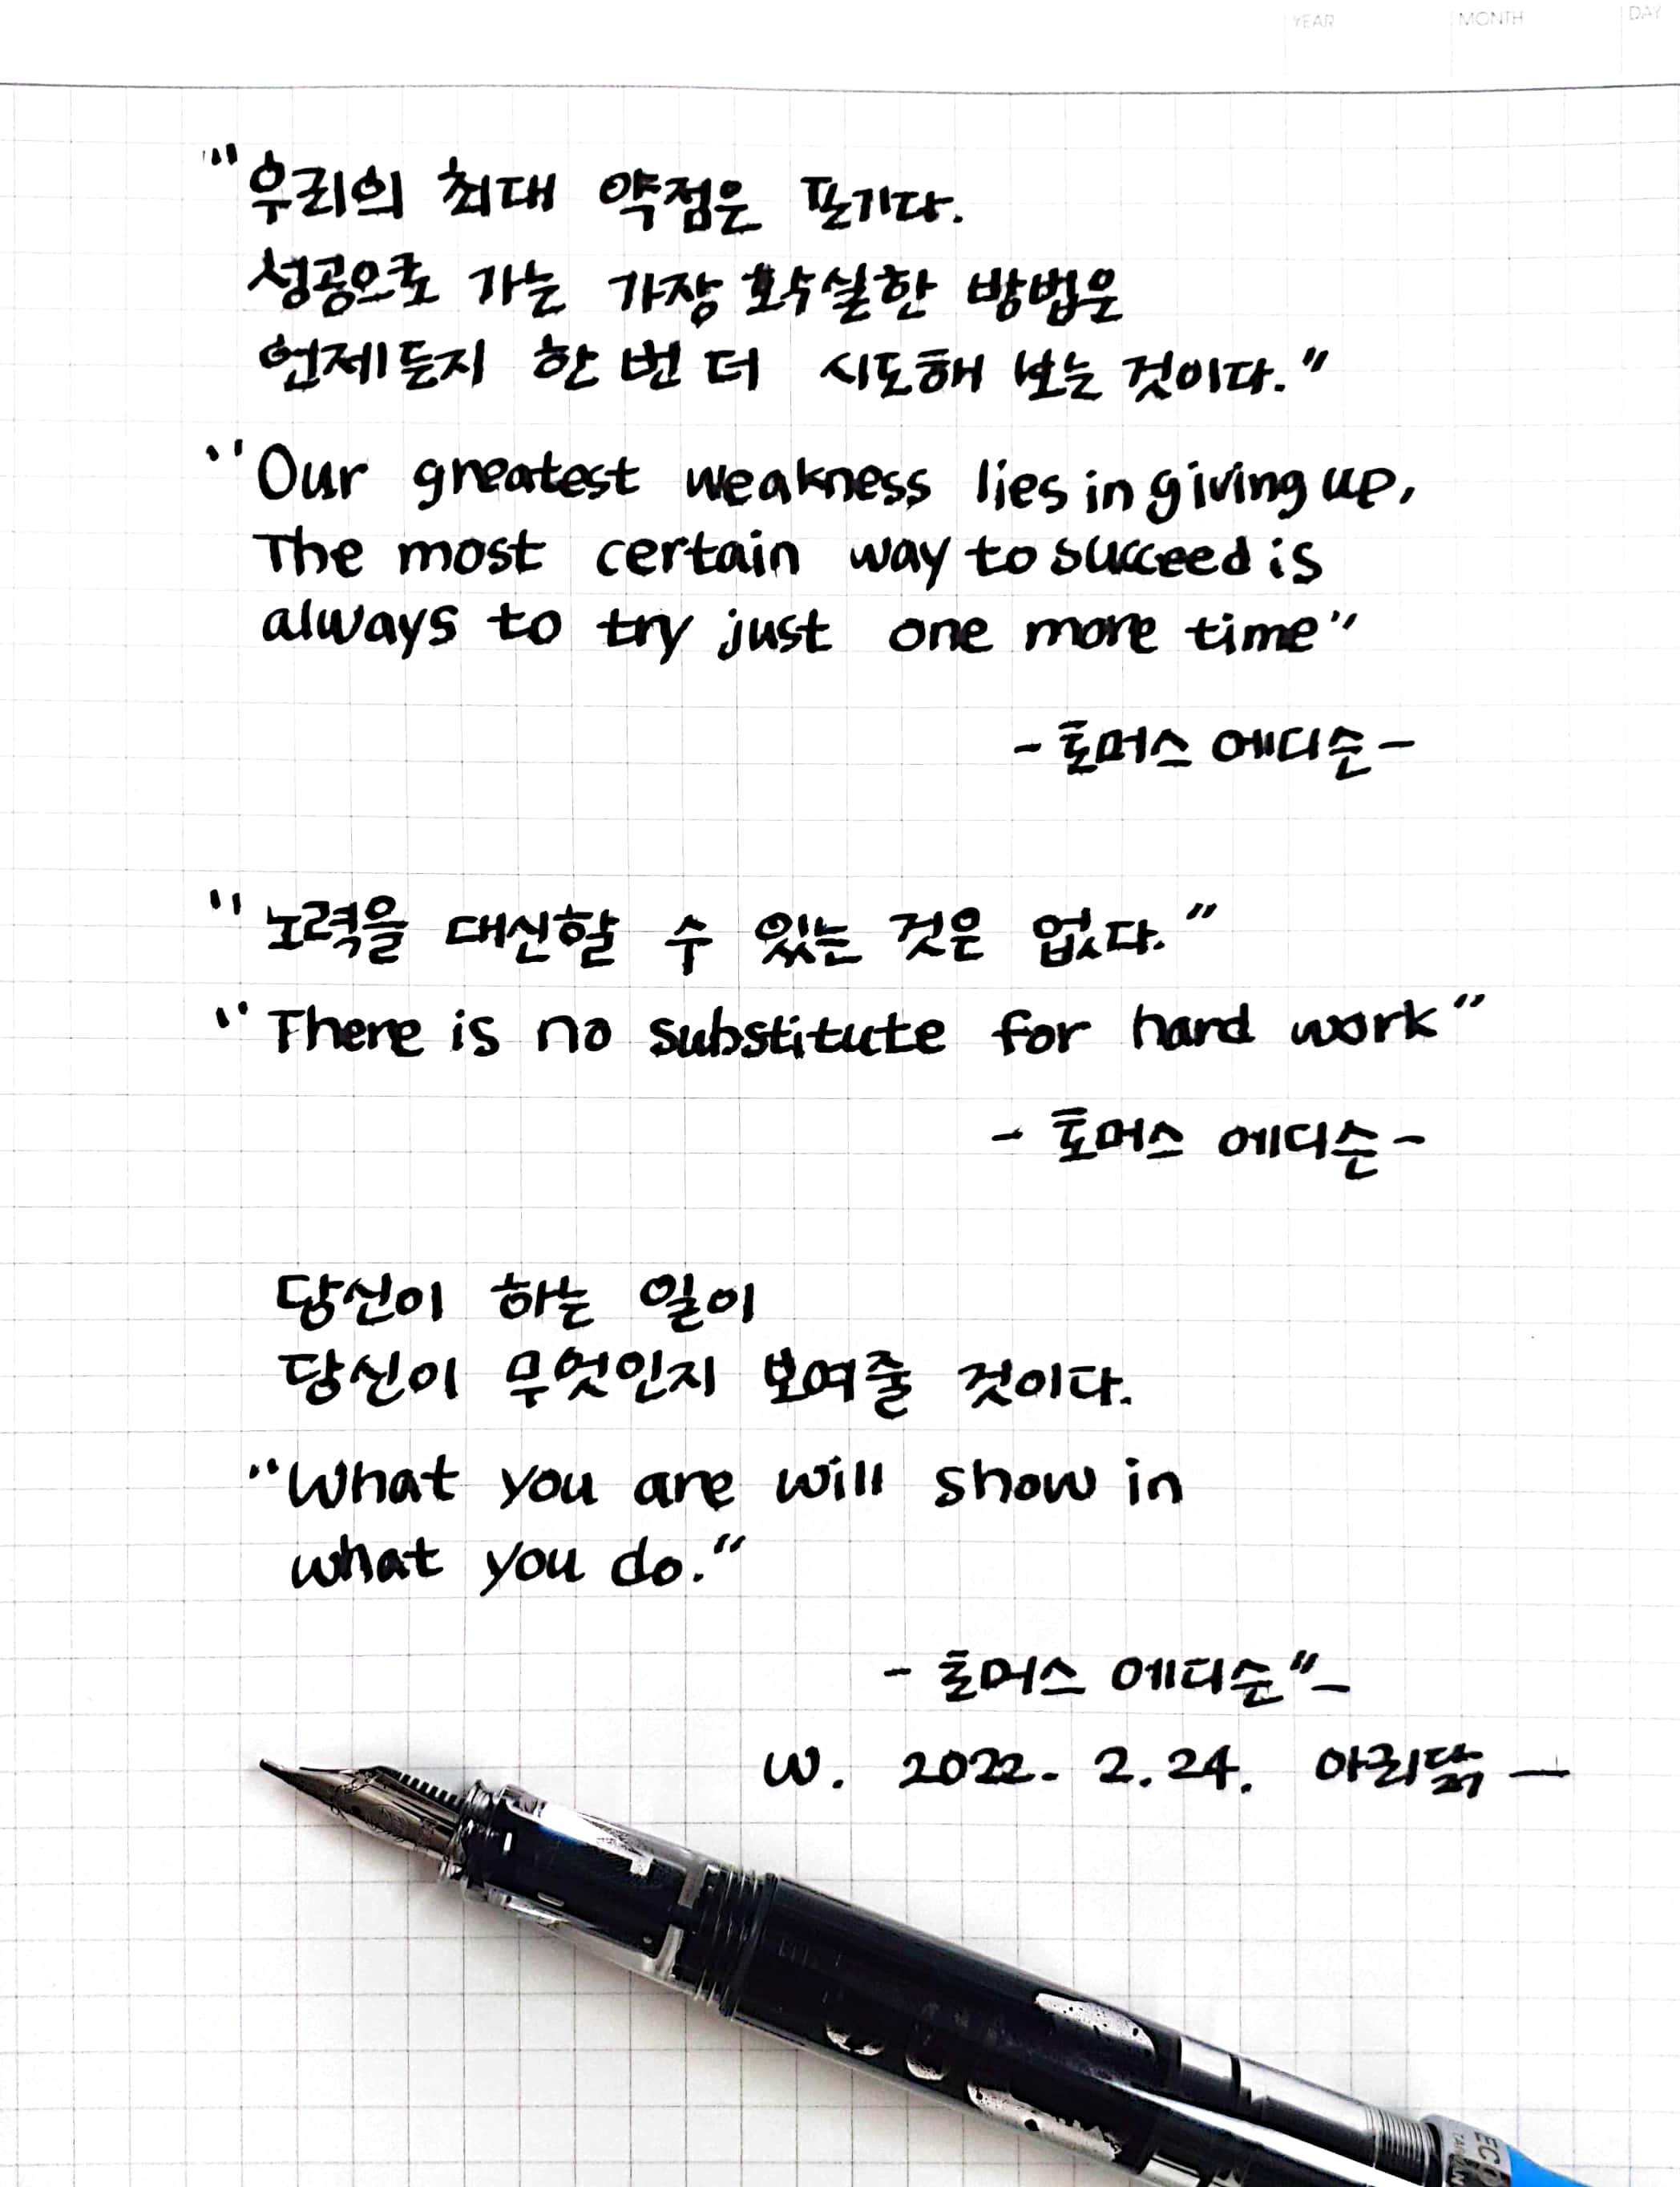 YEAR MONTH DAY
"우리의 최대 약점은 포기다.
성공으로 가는 가장 확실한 방법은
언제든지 한 번 더 시도해 보는 것이다."
"Our greatest weakness lies in giving up,
The most certain way to succeed is
always to try just one more time"
- 토머스 에디슨 -
"노력을 대신할 수 있는 것은 없다."
"There is no substitute for hard work"
- 토머스 에디슨 -
당신이 하는 일이
당신이 무엇인지 보여줄 것이다.
"What you are will show in
what you do."
- 토머스 에디슨" -
W. 2022. 2.24. 아리닭 —
ECO